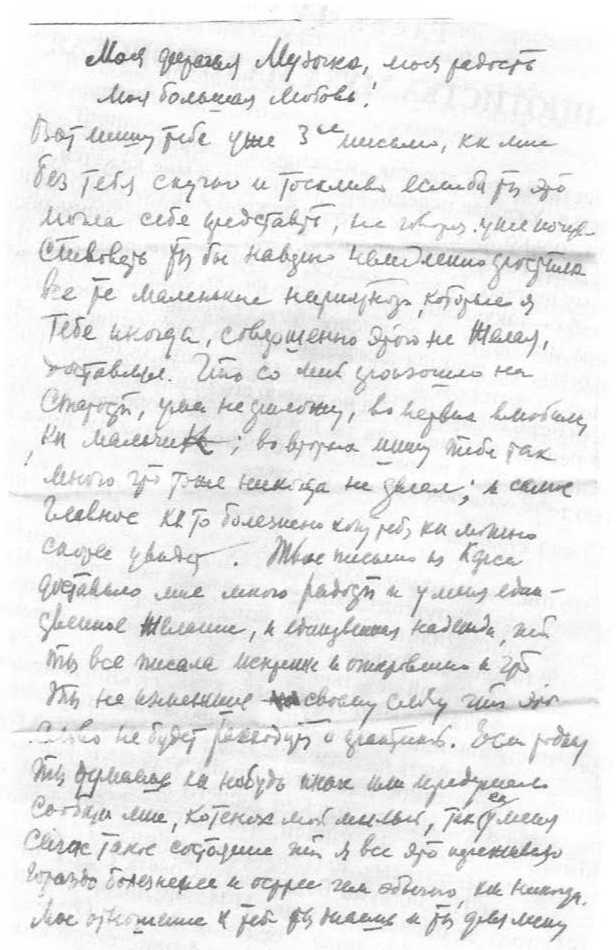 Моя дорогая Музочка, моя радость
моя большая любовь!
Вот пишу тебе уже 3ье письмо, как мне
без тебя скучно и тоскливо если бы ты это
могла себе представить, не говоря уже почув-
ствовать ты бы наверно немедленно простила
все те маленькие неприятности, которые я
тебе иногда, совершенно этого не желая,
доставлял. Что со мной произошло на
старости, ума не приложу, во первых влюбился
как мальчик; во вторых пишу тебе так
много что тоже никогда не делал; и самое
главное как то болезненно хочу тебя как можно
скорее увидеть. Твое письмо из
доставило мне много радости и у меня един-
ственное желание, и единственная надежда, что
ты все писала искренне и откровенно и что
ты не изменишь своему слову что это
слово не будет расходиться с практикой. Если
ты как нибудь иначе или передумала
сообщи мне, котенок мой милый, так у меня
сейчас такое состояние что я все это переживаю
гораздо болезненнее и острее чем обычно, как никогда.
Мое отношение к тебе ты знаешь и ты для меня